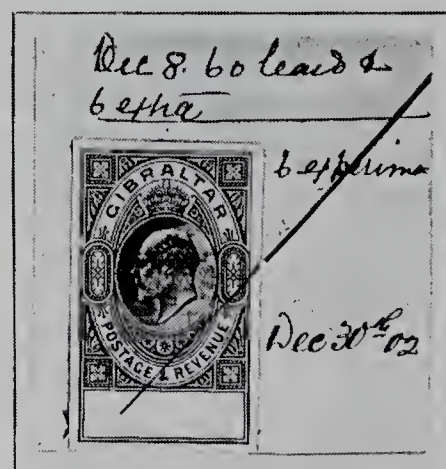 Dec 8. 60 leads &
6 extra
6 experim
GIBRALTAR
POSTAGE & REVENUE
Dec 30th 02